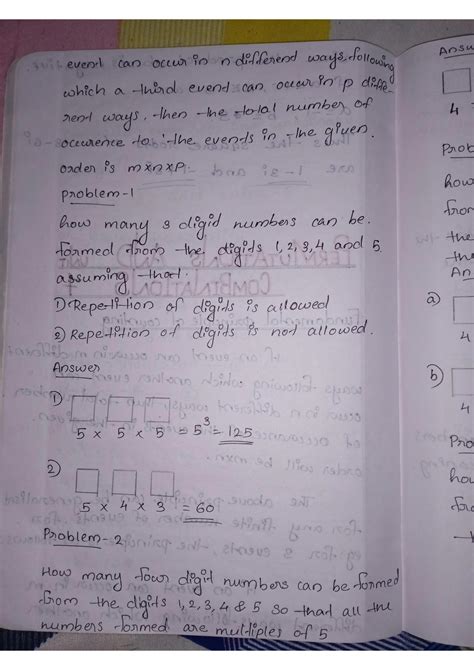 event can occur in n different ways, following
which a third event can occur in p diffe-
rent ways, then the total number of
occurence to the events in the given
order is m×n×p.
Problem-1
how many 3 digit numbers can be
formed from the digits 1, 2, 3, 4 and 5
assuming that.
1) Repetition of digits is allowed
2) Repetition of digits is not allowed.
Answer
1)
5 × 5 × 5 = 5³ = 125
2)
5 × 4 × 3 = 60
Problem-2
How many four digit numbers can be formed
from the digits 1, 2, 3, 4 & 5 so that all the
numbers formed are multiples of 5
Answ
4
Prob
how
from
the
An
a)
4
b)
4
Pro
ho